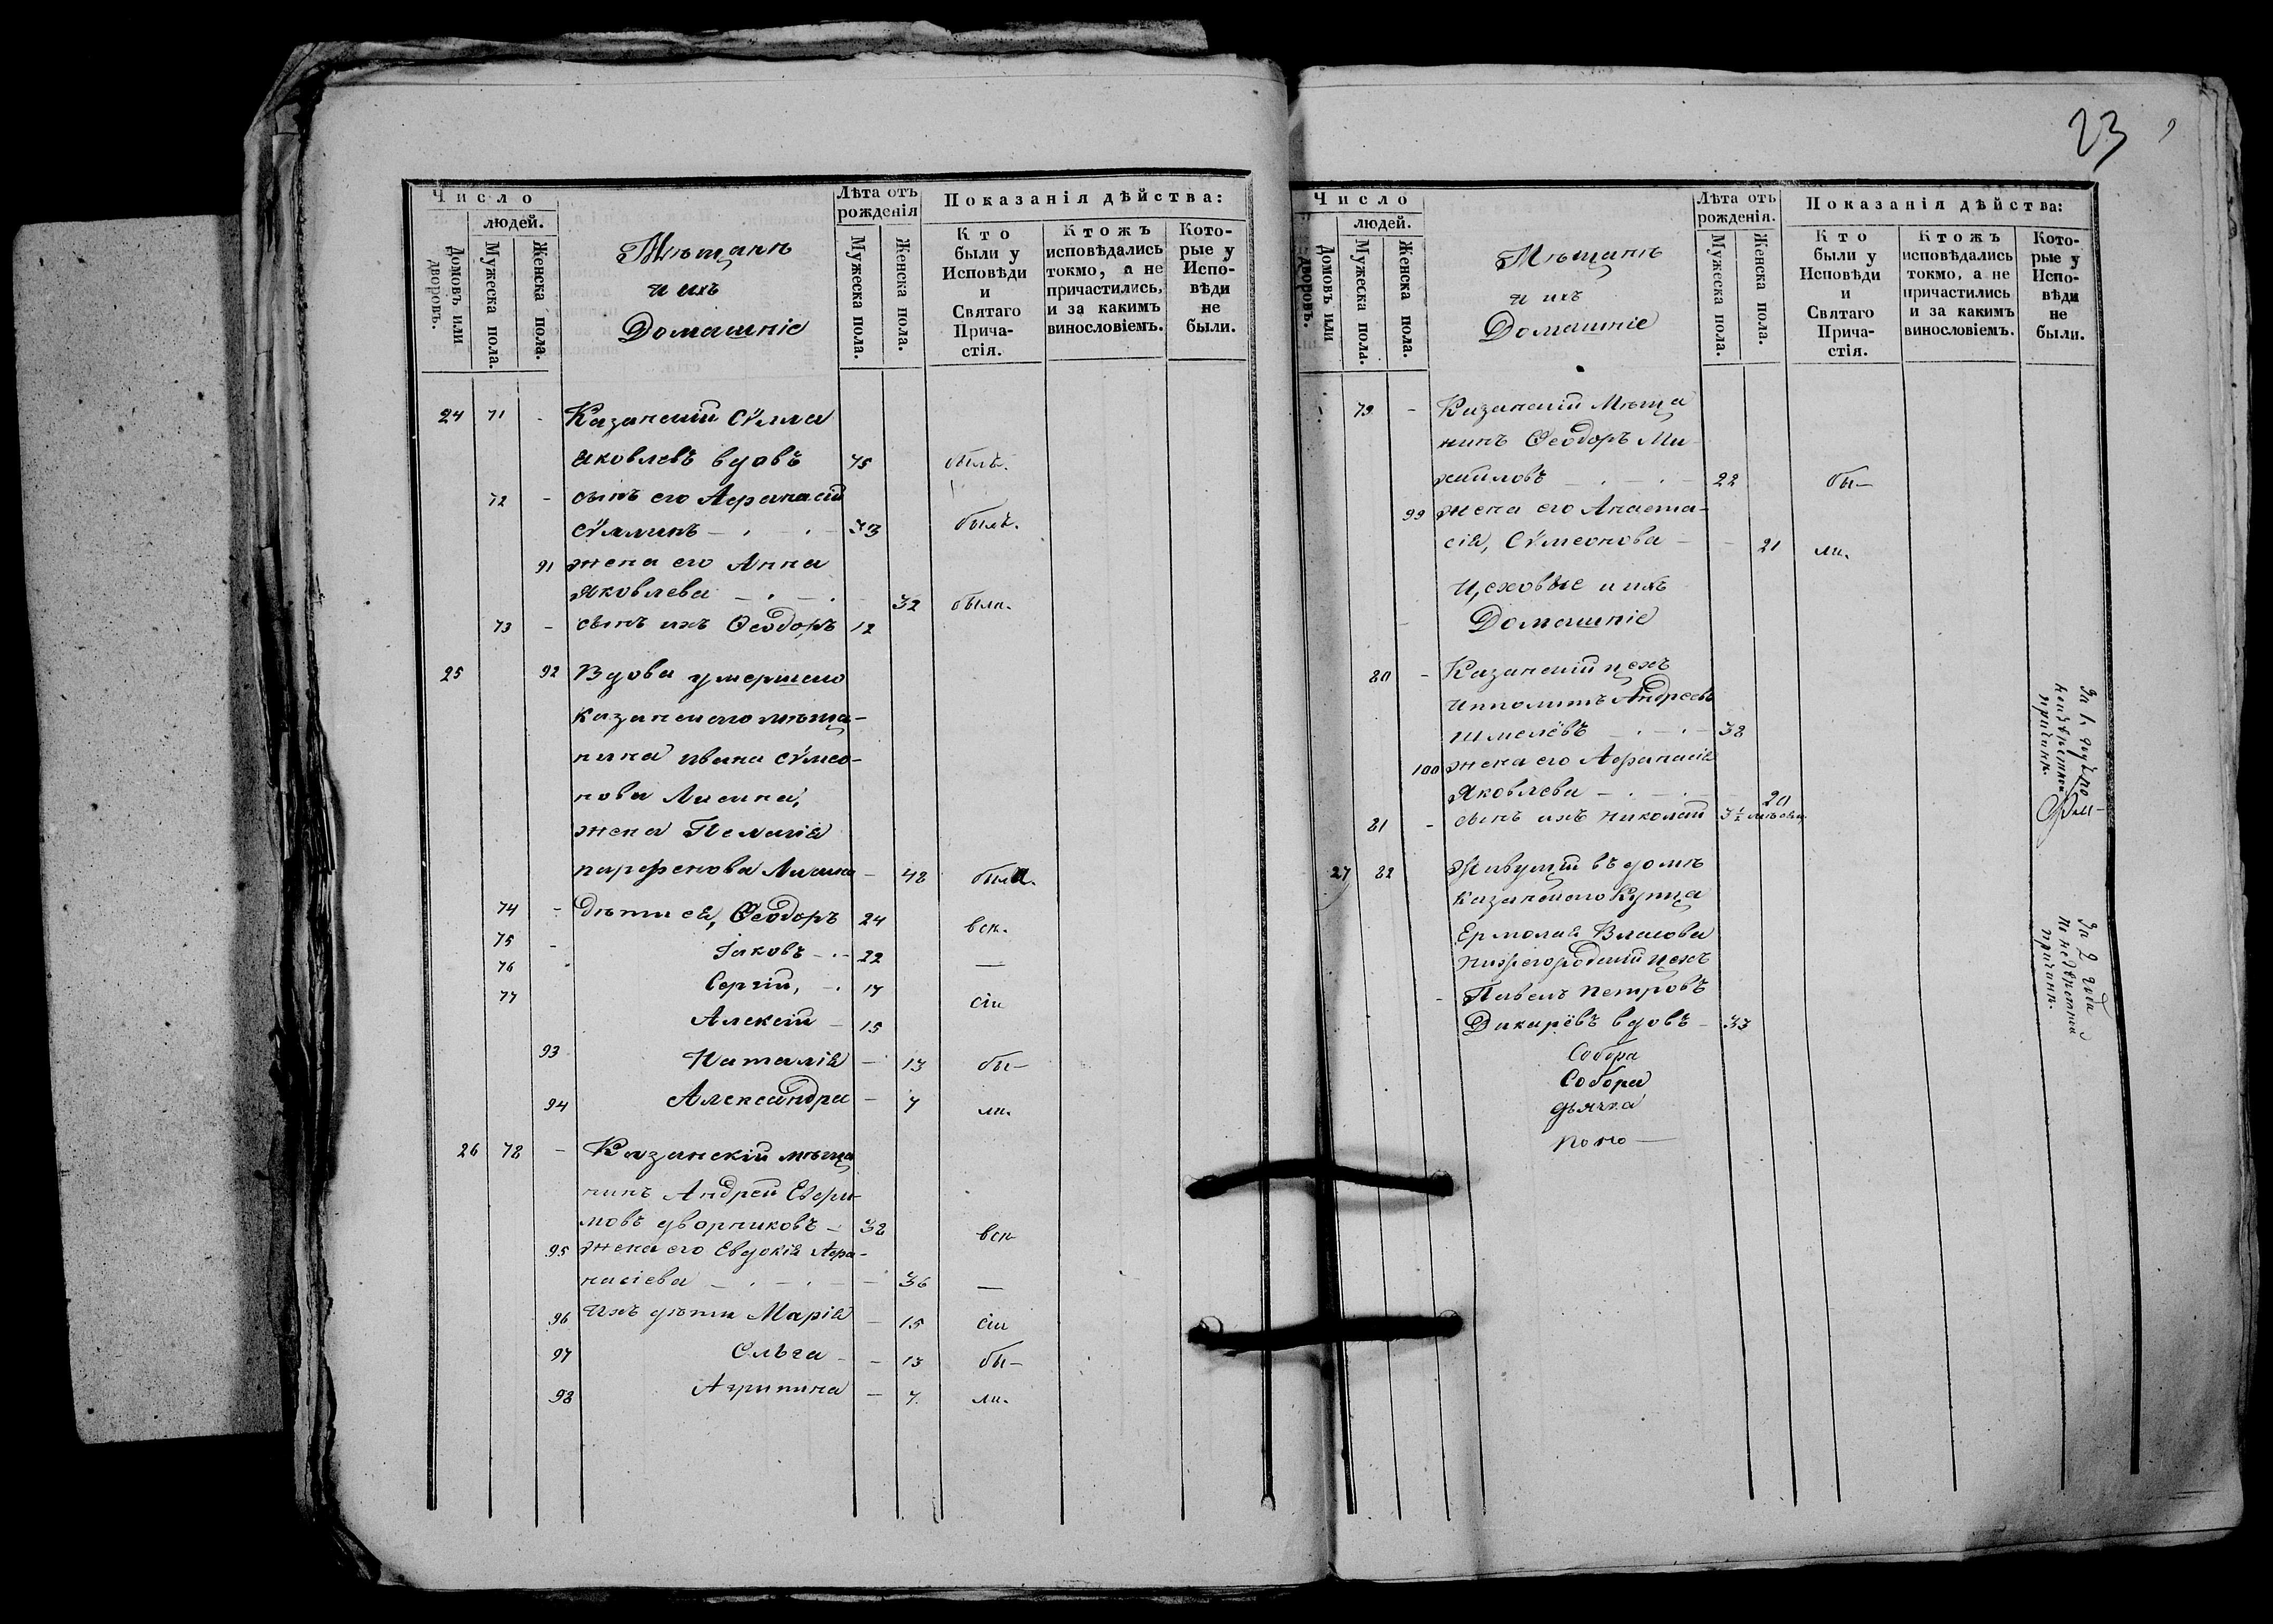 Число
людей.
Домовъ или дворовъ.
Мужеска пола.
Женска пола.
Мѣщанѣ
и ихъ
Домашніе
Лѣта отъ
рожденія
Мужеска пола.
Женска пола.
Показанія дѣйства:
Кто
были у
Исповѣди
и
Святаго
Прича-
стія.
Ктожъ
исповѣдались
токмо, а не
причастились,
и за какимъ
винословіемъ.
Кото-
рые у
Испо-
вѣди
не
были.
24 71 - Казанскій Сѵмма
Яковлевъ вдовъ 75 былъ.
72 - сынъ его Аѳанасій
Сѵлминъ 33 былъ.
91 жена его Анна
Яковлева 32 была.
73 - сынъ ихъ Ѳеодоръ 12
25 92 Вдова умершаго
казанскаго мѣща-
нина Ивана Сѵмео-
нова Лисина,
жена Пелагія
парфенова Лисина - 48 была.
74 - дѣти ея, Ѳеодоръ 24 всѣ.
75 - Іаковъ 22 —
76 Сергій, 17 сіи
77 Алексій - 15
93 Наталія - 13 бы-
94 Александра - 7 ли.
26 78 - Казанскій мѣща
нинъ Андрей Ефри-
мовъ дворниковъ - 38 всѣ
95 Жена его Евдокія Афа-
насіева 36 —
96 Ихъ дѣти Марія - 15 сіи
97 Ольга - 13 бы-
98 Агрипина - 7. ли.
23
Число
людей.
Домовъ или дворовъ.
Мужеска пола.
Женска пола.
Мѣщанѣ
и ихъ
Домашніе
Лѣта отъ
рожденія.
Мужеска пола.
Женска пола.
Показанія дѣйства:
Кто
были у
Исповѣди
и
Святаго
Прича-
стія.
Ктожъ
исповѣдались
токмо, а не
причастились
и за какимъ
винословіемъ.
Кото-
рые у
Испо-
вѣди
не
были.
79 - Казанскій Мѣща
нинъ Ѳеодоръ Ми-
хайловъ 22 бы-
99 жена его Анаста-
сія, Сѵмеонова - 21 ли.
Цеховые и ихъ
Домашніе
80 - Казанскій цехъ
Ипполитъ Андреевъ
Шмелёвъ 38
За 1. годъ по
неизвѣстной
причинѣ.
100 жена его Афанасія
Яковлева 20
81 - сынъ ихъ Николай 3½
27 82 Живущій въ домѣ
казанскаго Купца
Ермолая Власова
нижегородскій цехъ
- Павелъ Петровъ
Дикарёвъ вдовъ - 33
За 2 года
по неизвѣстной
причинѣ.
Собора
Собора
дьячка
поно-